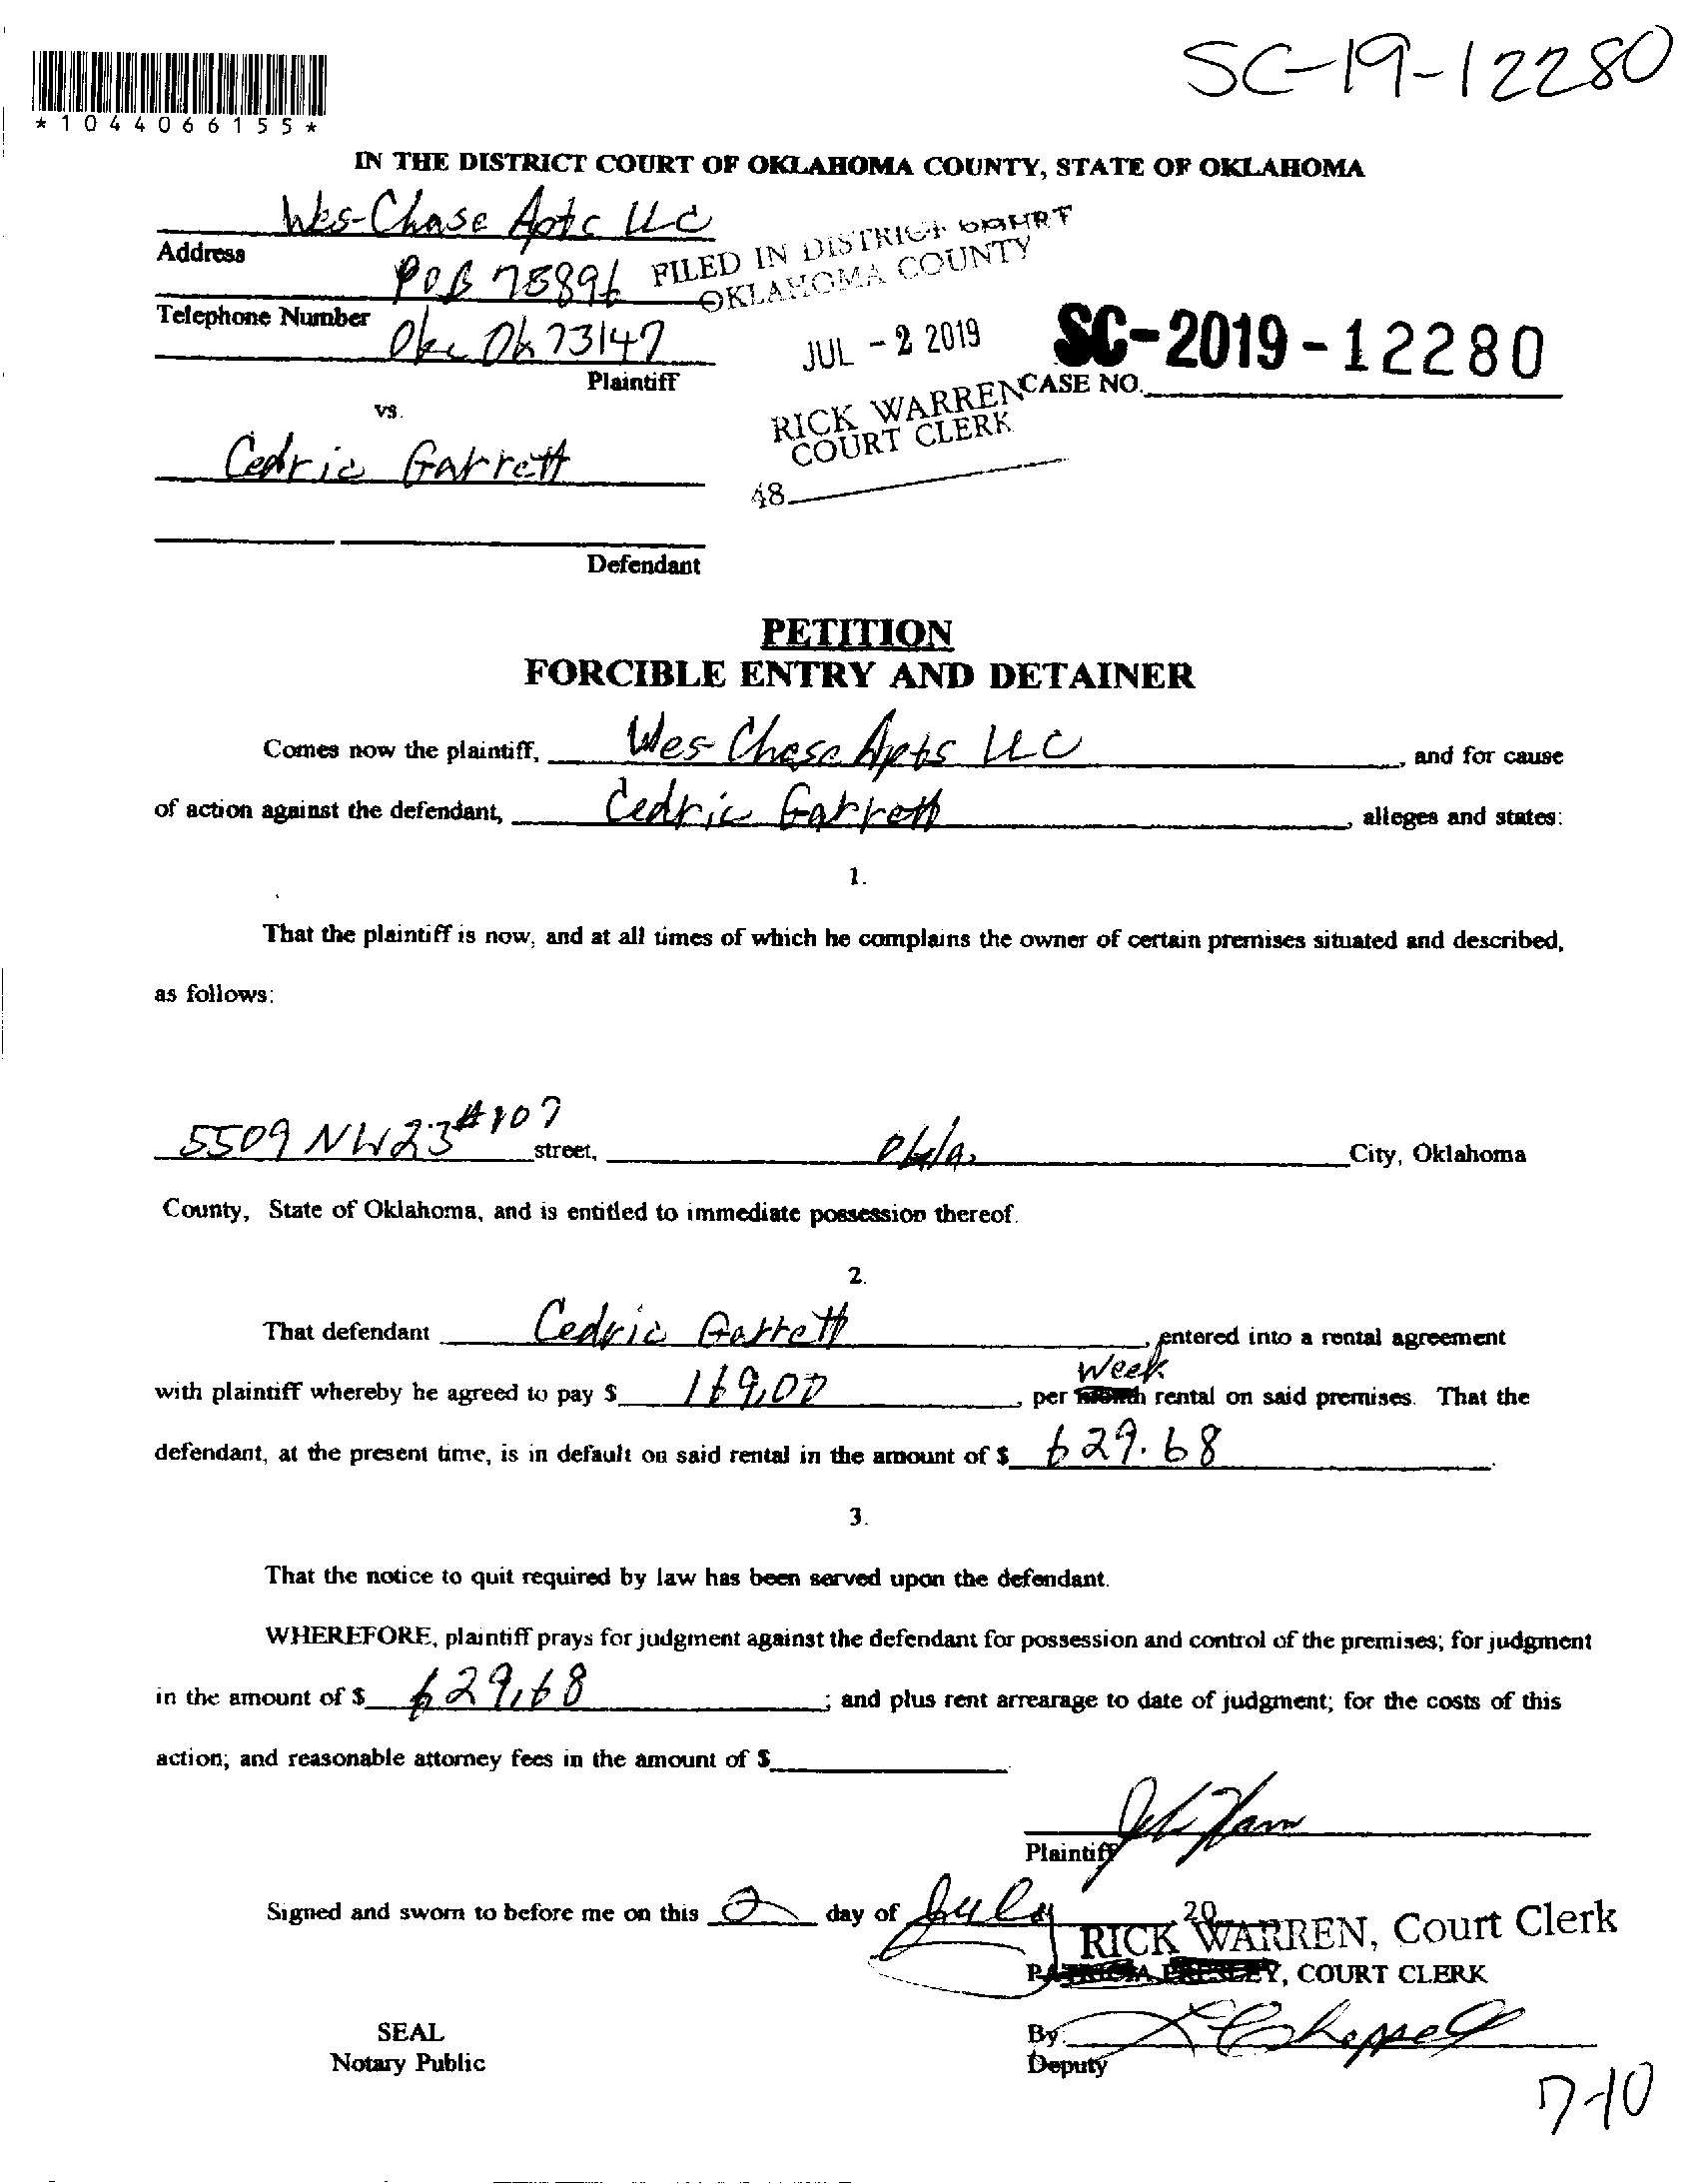 SC-19-12280
*1044066155*
IN THE DISTRICT COURT OF OKLAHOMA COUNTY, STATE OF OKLAHOMA
Wes-Chase Apts LLC
Address
POB 75896
FILED IN DISTRICT COURT
OKLAHOMA COUNTY
Telephone Number
Okc Ok 73147
JUL - 2 2019
SC-2019-12280
Plaintiff
CASE NO.
vs.
RICK WARREN
COURT CLERK
Cedric Garrett
48
Defendant
PETITION
FORCIBLE ENTRY AND DETAINER
Comes now the plaintiff, Wes-Chase Apts LLC, and for cause
of action against the defendant, Cedric Garrett, alleges and states:
1.
That the plaintiff is now, and at all times of which he complains the owner of certain premises situated and described,
as follows:
5509 NW 23 #107 street, Okla. City, Oklahoma
County, State of Oklahoma, and is entitled to immediate possession thereof.
2.
That defendant Cedric Garrett, entered into a rental agreement
Week
with plaintiff whereby he agreed to pay $ 169.00, per month rental on said premises. That the
defendant, at the present time, is in default on said rental in the amount of $ 629.68.
3.
That the notice to quit required by law has been served upon the defendant.
WHEREFORE, plaintiff prays for judgment against the defendant for possession and control of the premises; for judgment
in the amount of $ 629.68; and plus rent arrearage to date of judgment; for the costs of this
action; and reasonable attorney fees in the amount of $
Plaintiff
Signed and sworn to before me on this 2 day of July 20
RICK WARREN, Court Clerk
PATRICIA PRESLEY, COURT CLERK
SEAL
By:
Notary Public
Deputy
7-10